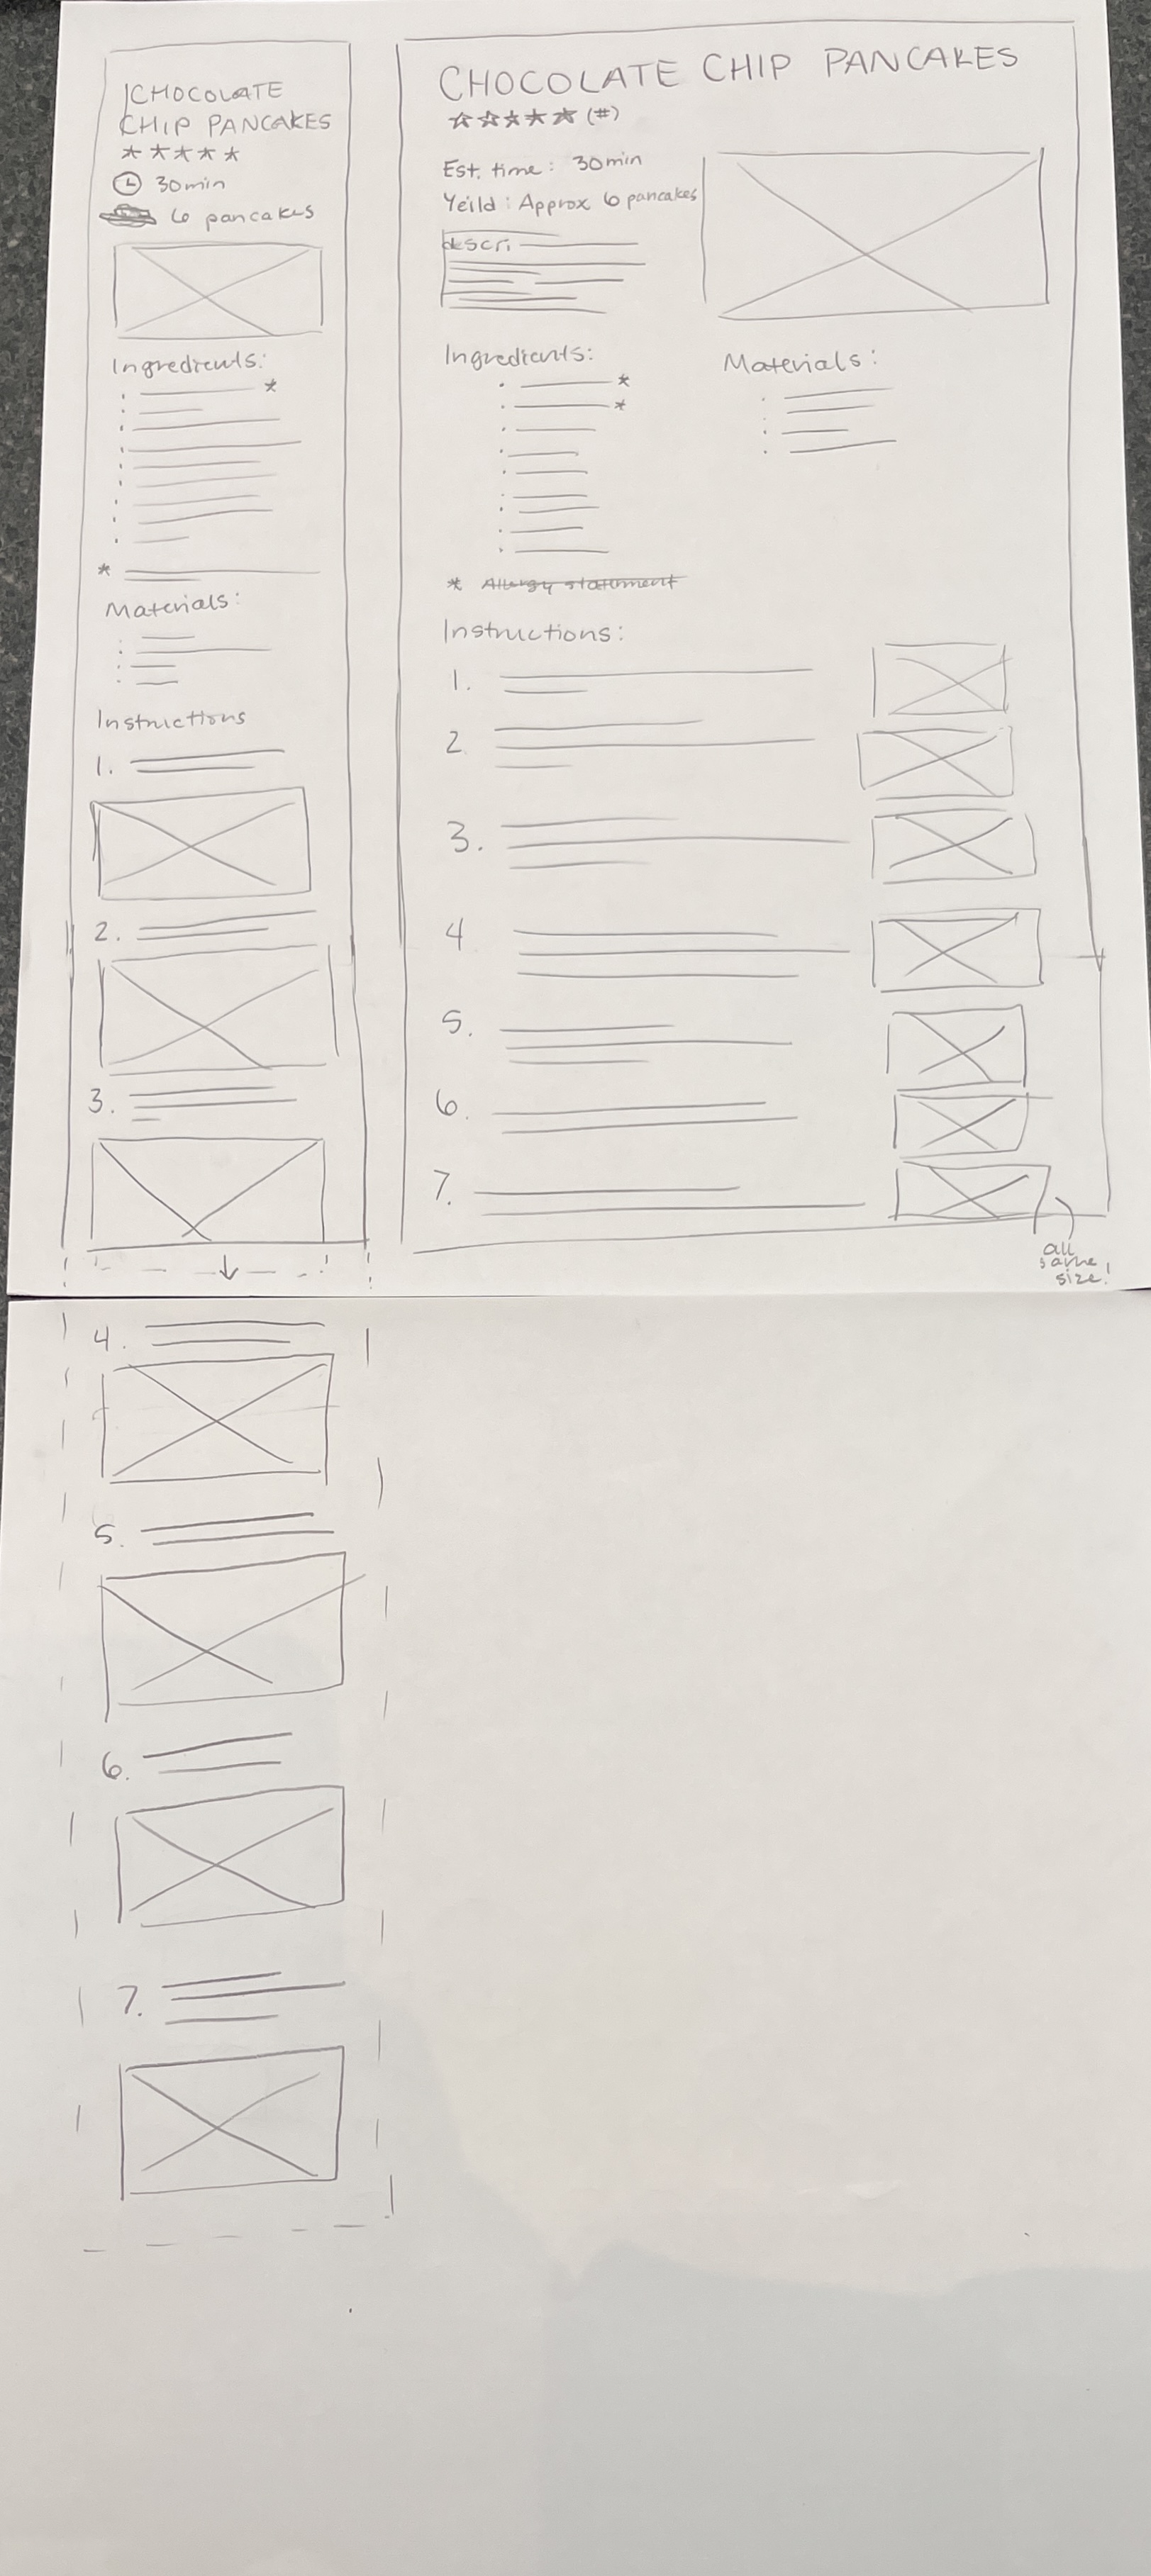 CHOCOLATE
CHIP PANCAKES
30min
6 pancakes
Ingredients:
*
*
Materials:
Instructions
1.
2.
3.
4.
5.
6.
7.
CHOCOLATE CHIP PANCAKES
(#)
Est. time: 30min
Yeild: Approx 6 pancakes
descri
Ingredients:
*
*
Materials:
* Allergy statement
Instructions:
1.
2.
3.
4
5.
6.
7.
all
same
size!